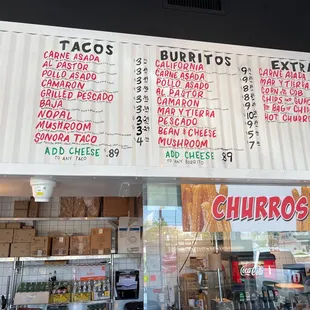 TACOS
CARNE ASADA
AL PASTOR
POLLO ASADO
CAMARON
GRILLED PESCADO
BAJA
NOPAL
MUSHROOM
SONORA TACO
ADD CHEESE .89
TO ANY TACO
BURRITOS
CALIFORNIA
CARNE ASADA
POLLO ASADO
AL PASTOR
CAMARON
MAR Y TIERRA
PESCADO
BEAN & CHEESE
MUSHROOM
ADD CHEESE .89
TO ANY BURRITO
EXTRA
CARNE ASADA
MAR Y TIERRA
CORN ON THE COB
CHIPS
BAG OF CHIPS
HOT CHURRO
CHURROS
Coca-Cola